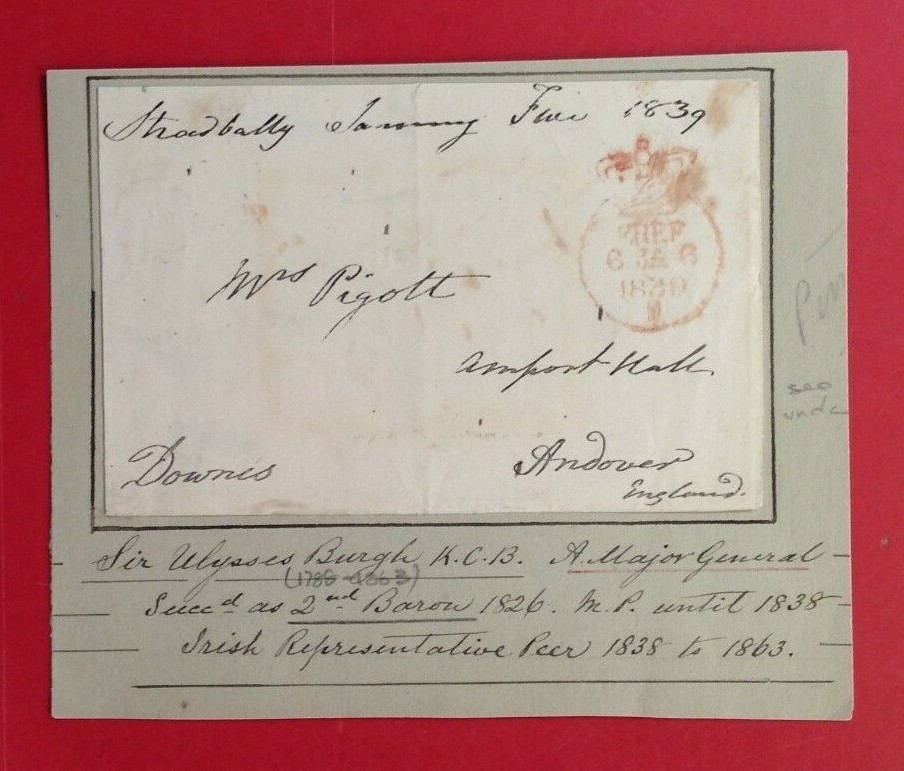 Stradbally January Five 1839
FREE
6 JA 6
1839
Mrs Pigott
Amport Hall.
Downes
Andover
England.
see
Sir Ulysses Burgh K.C.B. A Major General
(1788-1863)
Succd as 2nd Baron 1826. M.P. until 1838
Irish Representative Peer 1838 to 1863.